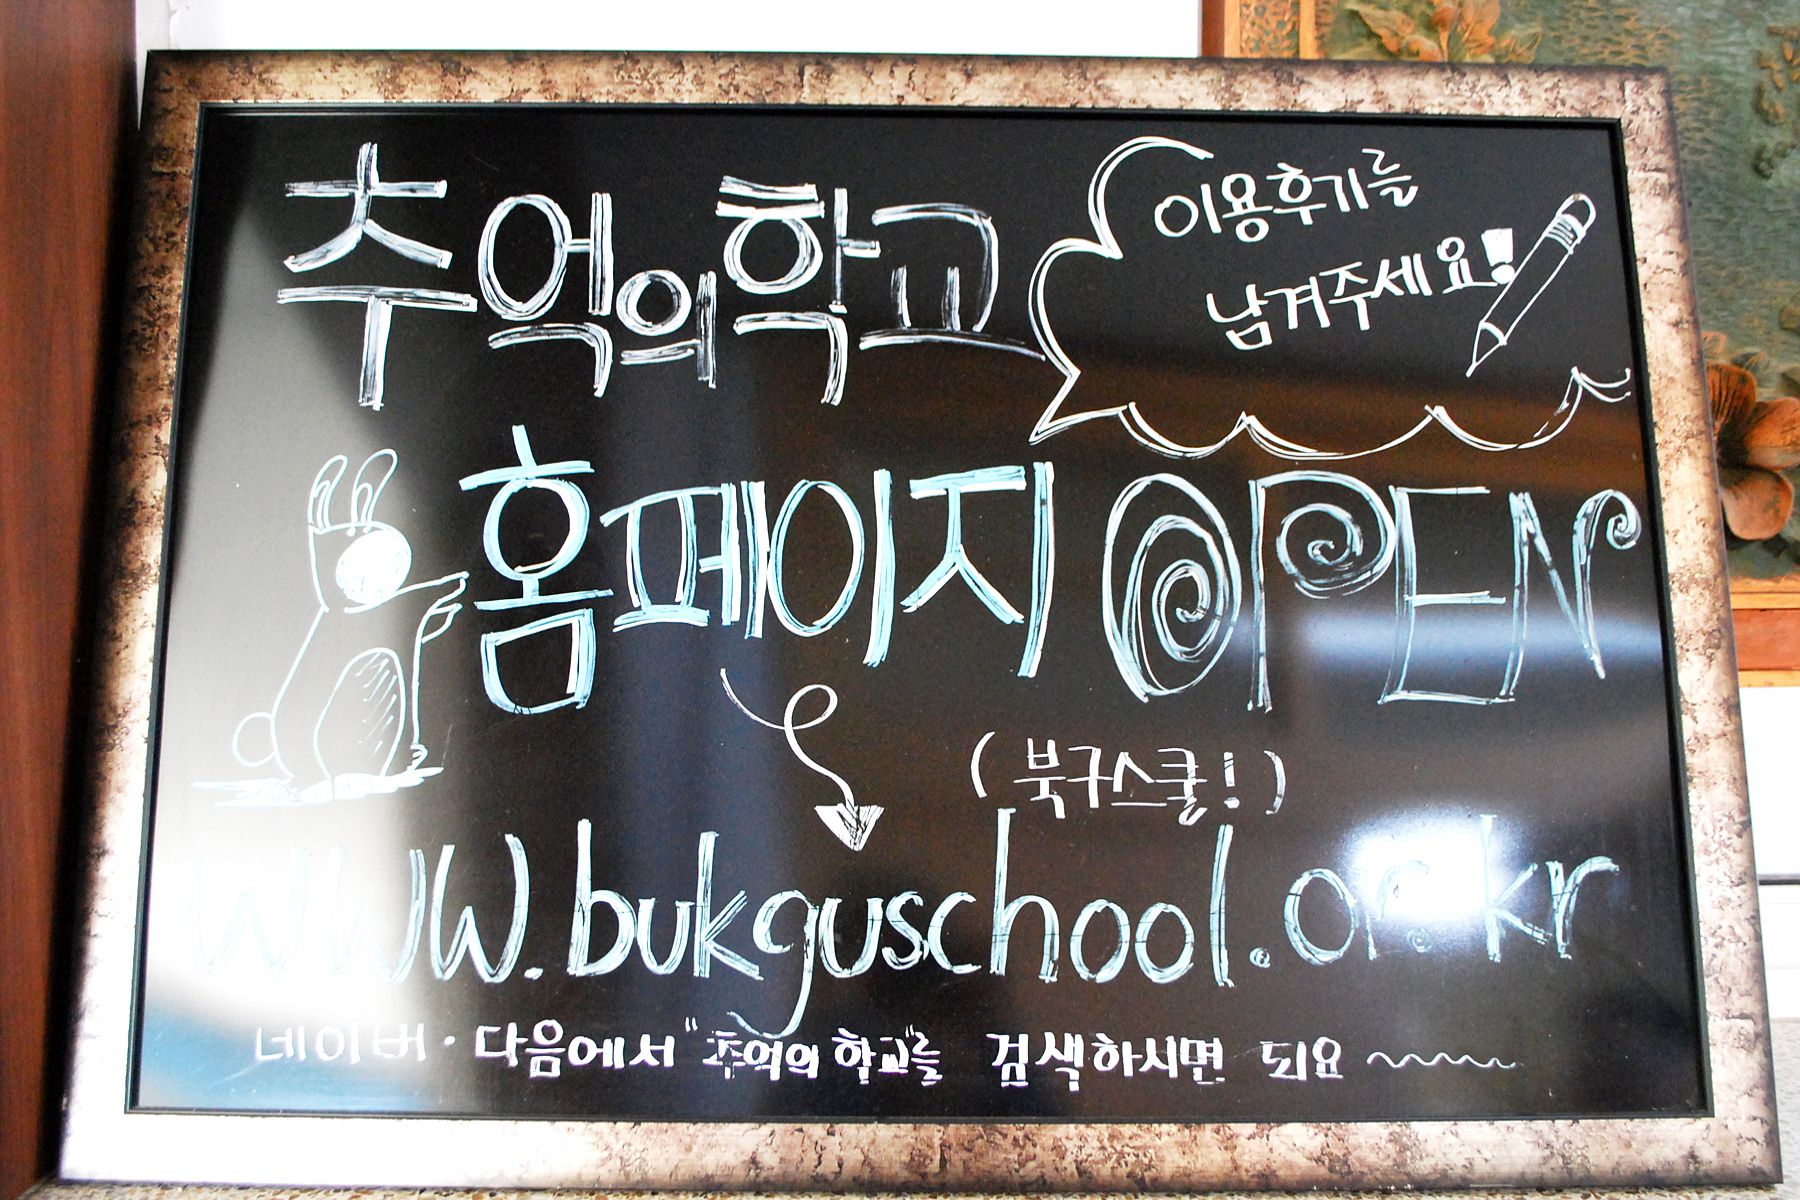 추억의학교
이용후기를
남겨주세요!
홈페이지 OPEN
(북구스쿨!)
www.bukguschool.or.kr
네이버·다음에서 "추억의 학교"를 검색하시면 되요~~~